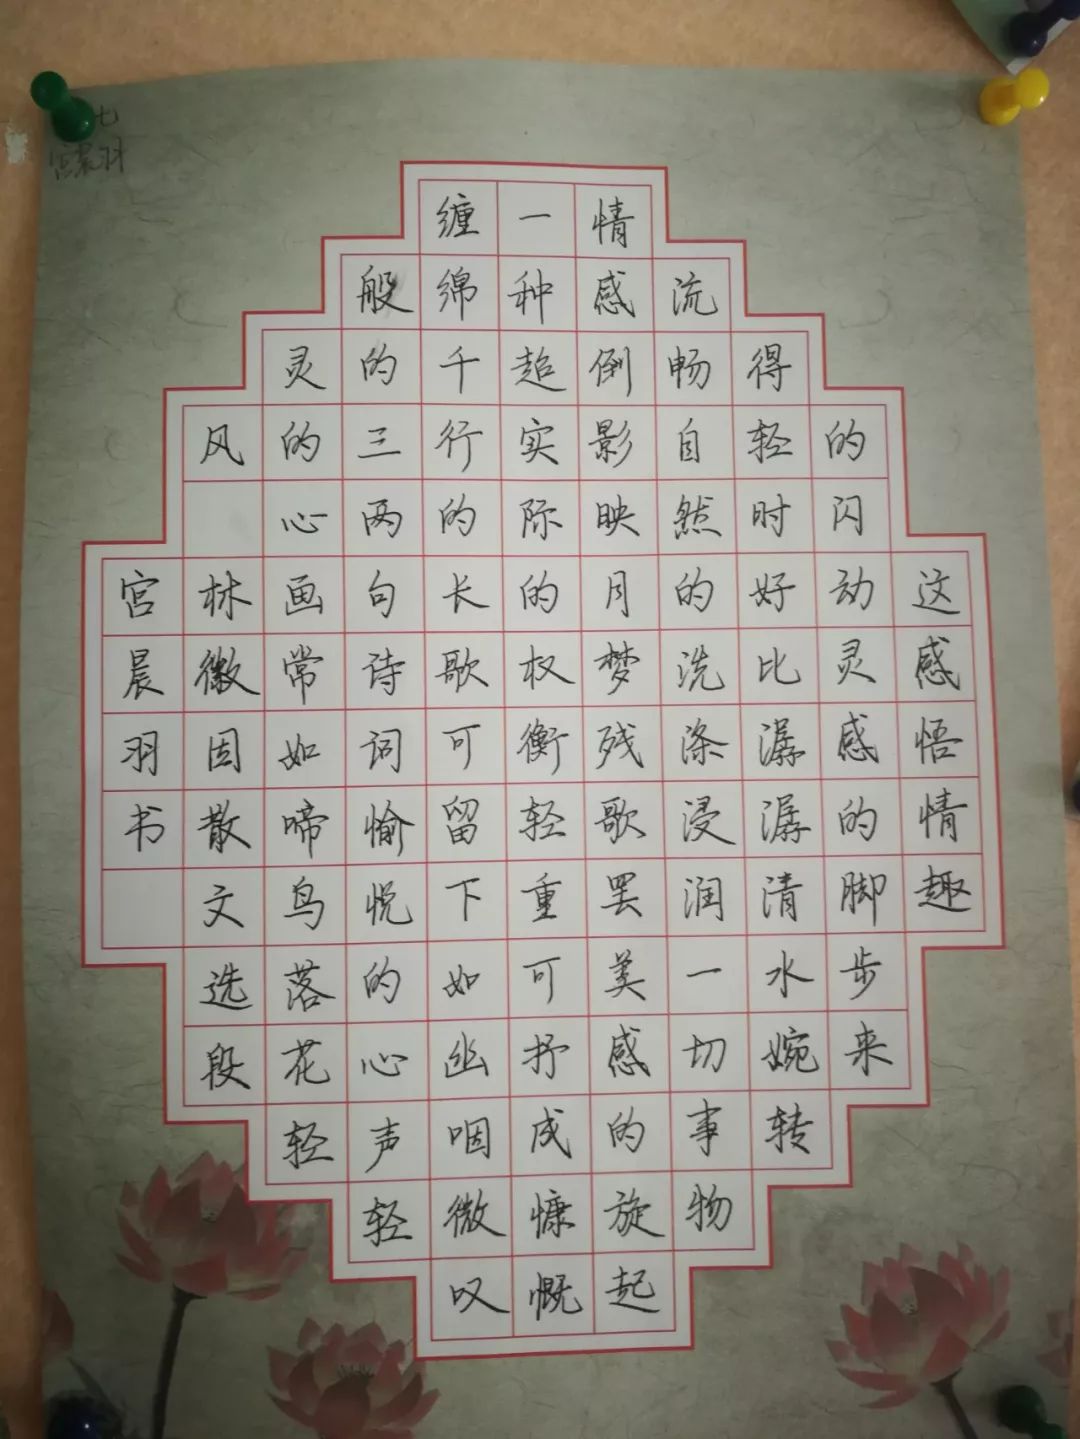 这感悟情趣
的闪动灵感的脚步来
得轻时好比潺潺清水婉转
流畅自然的洗涤浸润一切事物
情感倒影映月梦残歌罢美感的旋起
一种超实际的权衡轻重可抒成慷慨
缠绵千行的长歌可留下如幽咽微叹
般的三两句诗词愉悦的心声轻
灵的心画常如啼鸟落花轻
风 林徽因散文选段
宫晨羽书
七
宫晨羽